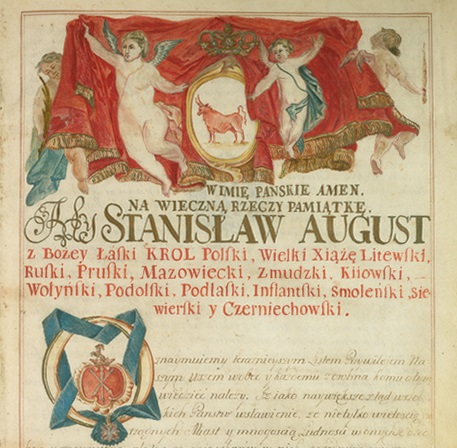 W IMIĘ PAŃSKIE AMEN.
NA WIECZNĄ RZECZY PAMIĄTKĘ.
My STANISŁAW AUGUST
z Bożey Łaski KROL Polski, Wielki Xiążę Litewski,
Ruski, Pruski, Mazowiecki, Zmudzki, Kiiowski,
Wołyński, Podolski, Podlaski, Inflantski, Smoleński, Sie-
wierski y Czerniechowski.
znaymuiemy ninieyszym Listem Przywileiem Na
szym wszem wobec y każdemu zosobna komu o tym
wiedzieć należy, Iż iako naywiększe iest wszel
kich Państw wsławienie, że nietylko wielością po
rządnych Miast y mnogością Ludności